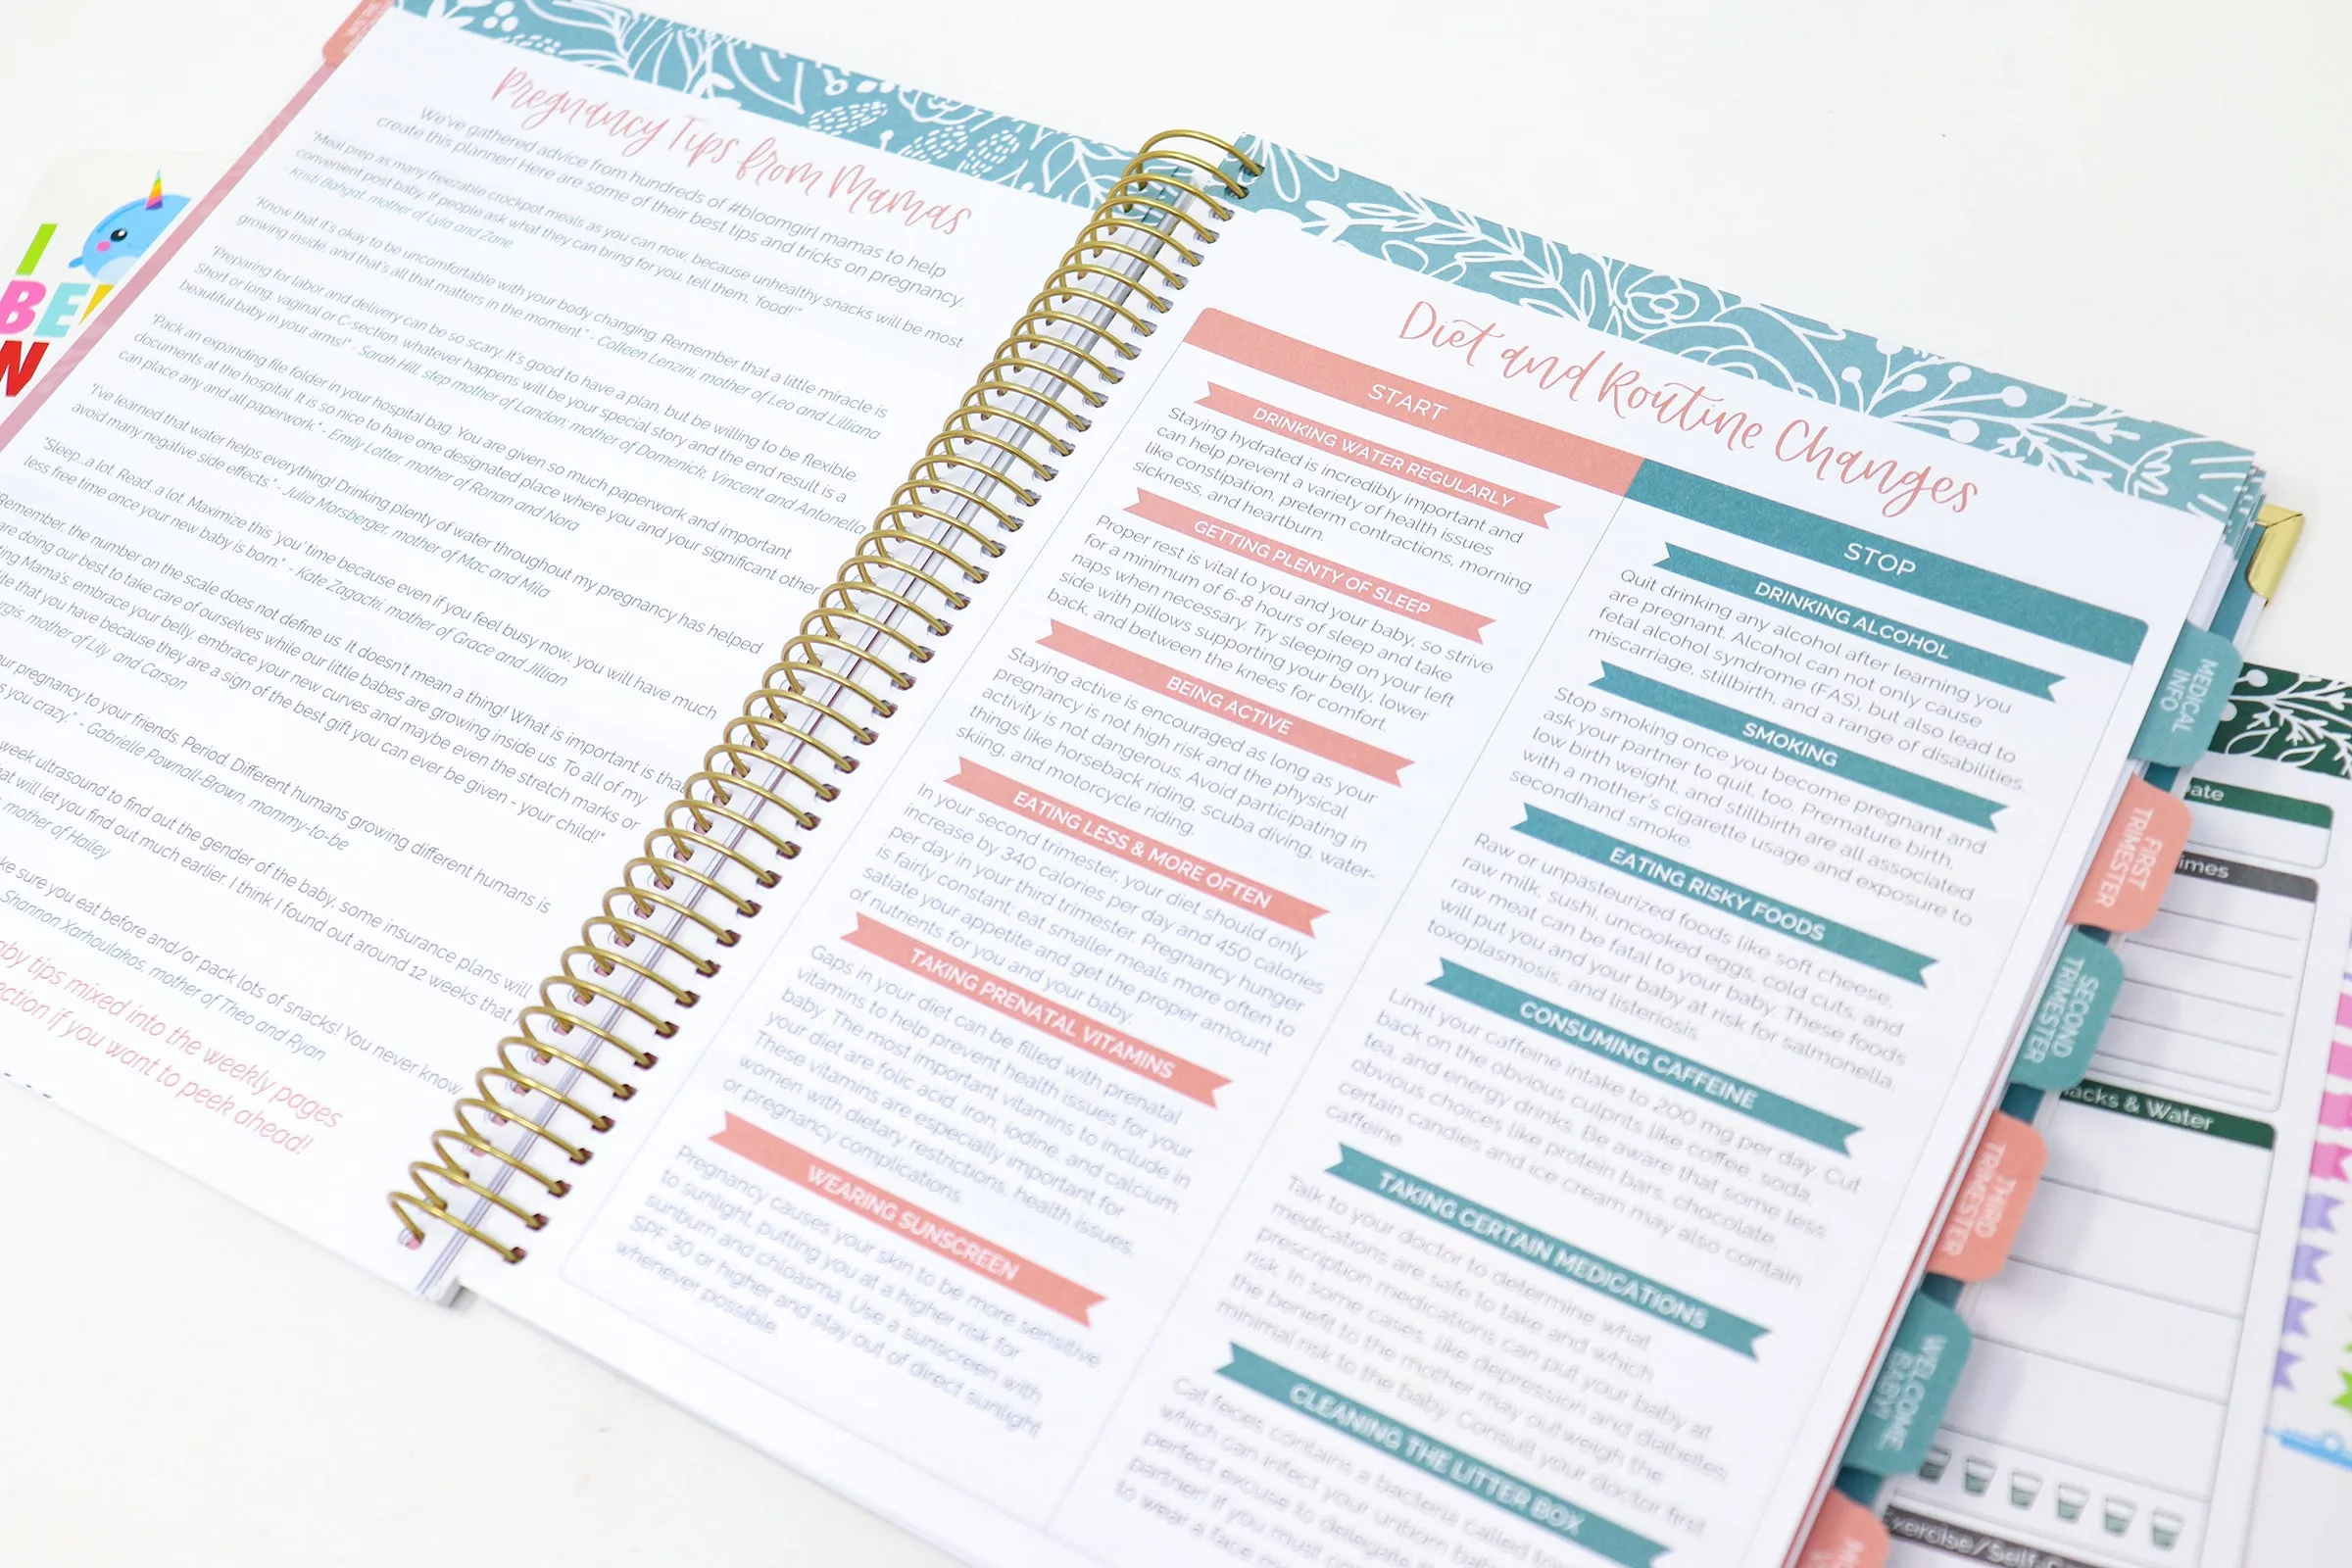 Pregnancy Tips from Mamas
We've gathered advice from hundreds of #bloomgirl mamas to help
create this planner! Here are some of their best tips and tricks on pregnancy.
"Meal prep as many freezable crockpot meals as you can now, because unhealthy snacks will be most
convenient post baby. If people ask what they can bring for you, tell them, 'food!'"
- Kristi Bahgat, mother of Lyla and Zane
"Know that it's okay to be uncomfortable with your body changing. Remember that a little miracle is
growing inside, and that's all that matters in the moment." - Colleen Lenzini, mother of Leo and Lilliana
"Preparing for labor and delivery can be so scary. It's good to have a plan, but be willing to be flexible.
Short or long, vaginal or C-section, whatever happens will be your special story and the end result is a
beautiful baby in your arms!" - Sarah Hill, step mother of Landon; mother of Domenick, Vincent and Antonella
"Pack an expanding file folder in your hospital bag. You are given so much paperwork and important
documents at the hospital. It is so nice to have one designated place where you and your significant other
can place any and all paperwork." - Emily Lotter, mother of Ronan and Nora
"I've learned that water helps everything! Drinking plenty of water throughout my pregnancy has helped
avoid many negative side effects." - Julia Morsberger, mother of Mac and Mila
"Sleep...a lot. Read...a lot. Maximize this 'you' time because even if you feel busy now, you will have much
less free time once your new baby is born." - Kate Zagacki, mother of Grace and Jillian
"Remember, the number on the scale does not define us. It doesn't mean a thing! What is important is that
are doing our best to take care of ourselves while our little babes are growing inside us. To all of my
Mama's: embrace your belly, embrace your new curves and maybe even the stretch marks or
that you have because they are a sign of the best gift you can ever be given - your child!"
mother of Lily and Carson
pregnancy to your friends. Period. Different humans growing different humans is
you crazy." - Gabrielle Pownall-Brown, mommy-to-be
week ultrasound to find out the gender of the baby, some insurance plans will
that will let you find out much earlier. I think I found out around 12 weeks that
mother of Hailey
sure you eat before and/or pack lots of snacks! You never know
Shannon Xarhoulakos, mother of Theo and Ryan
tips mixed into the weekly pages
if you want to peek ahead!
Diet and Routine Changes
START
DRINKING WATER REGULARLY
Staying hydrated is incredibly important and
can help prevent a variety of health issues
like constipation, preterm contractions, morning
sickness, and heartburn.
GETTING PLENTY OF SLEEP
Proper rest is vital to you and your baby, so strive
for a minimum of 6-8 hours of sleep and take
naps when necessary. Try sleeping on your left
side with pillows supporting your belly, lower
back, and between the knees for comfort.
BEING ACTIVE
Staying active is encouraged as long as your
pregnancy is not high risk and the physical
activity is not dangerous. Avoid participating in
things like horseback riding, scuba diving, water-
skiing, and motorcycle riding.
EATING LESS & MORE OFTEN
In your second trimester, your diet should only
increase by 340 calories per day and 450 calories
per day in your third trimester. Pregnancy hunger
is fairly constant; eat smaller meals more often to
satiate your appetite and get the proper amount
of nutrients for you and your baby.
TAKING PRENATAL VITAMINS
Gaps in your diet can be filled with prenatal
vitamins to help prevent health issues for your
baby. The most important vitamins to include in
your diet are folic acid, iron, iodine, and calcium.
These vitamins are especially important for
women with dietary restrictions, health issues,
or pregnancy complications.
WEARING SUNSCREEN
Pregnancy causes your skin to be more sensitive
to sunlight, putting you at a higher risk for
sunburn and chloasma. Use a sunscreen with
SPF 30 or higher and stay out of direct sunlight
whenever possible.
STOP
DRINKING ALCOHOL
Quit drinking any alcohol after learning you
are pregnant. Alcohol can not only cause
fetal alcohol syndrome (FAS), but also lead to
miscarriage, stillbirth, and a range of disabilities.
SMOKING
Stop smoking once you become pregnant and
ask your partner to quit, too. Premature birth,
low birth weight, and stillbirth are all associated
with a mother's cigarette usage and exposure to
secondhand smoke.
EATING RISKY FOODS
Raw or unpasteurized foods like soft cheese,
raw milk, sushi, uncooked eggs, cold cuts, and
raw meat can be fatal to your baby. These foods
will put you and your baby at risk for salmonella,
toxoplasmosis, and listeriosis.
CONSUMING CAFFEINE
Limit your caffeine intake to 200 mg per day. Cut
back on the obvious culprits like coffee, soda,
tea, and energy drinks. Be aware that some less
obvious choices like protein bars, chocolate,
certain candies and ice cream may also contain
caffeine.
TAKING CERTAIN MEDICATIONS
Talk to your doctor to determine what
medications are safe to take and which
prescription medications can put your baby at
risk. In some cases, like depression and diabetes,
the benefit to the mother may outweigh the
minimal risk to the baby. Consult your doctor first.
CLEANING THE LITTER BOX
Cat feces contains a bacteria called
which can infect your unborn
perfect excuse to delegate
partner! If you must
to wear a face
MEDICAL INFO
FIRST TRIMESTER
SECOND TRIMESTER
THIRD TRIMESTER
WELCOME, BABY!
Snacks & Water
I
BE
N